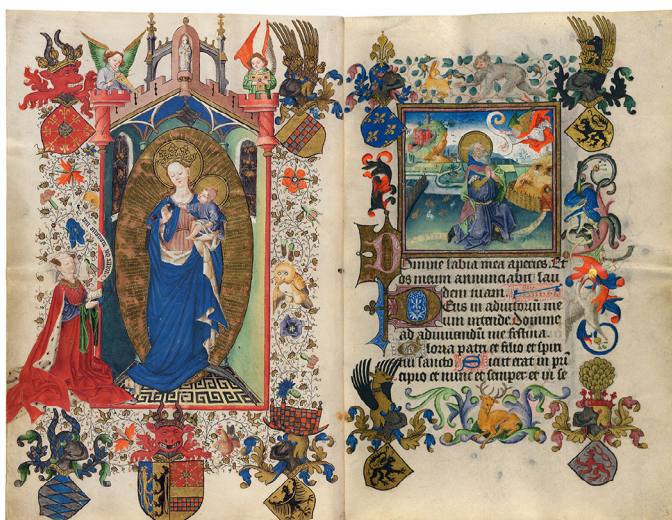 Domine labia mea aperies. Et
os meum annunciabit lau
dem tuam.
Deus in adiutoriū me
um intende Domine
ad adiuvandū me festina.
Gloria patri et filio et spiri
tui sancto Sicut erat in prī
cipio et nunc et semper et in se